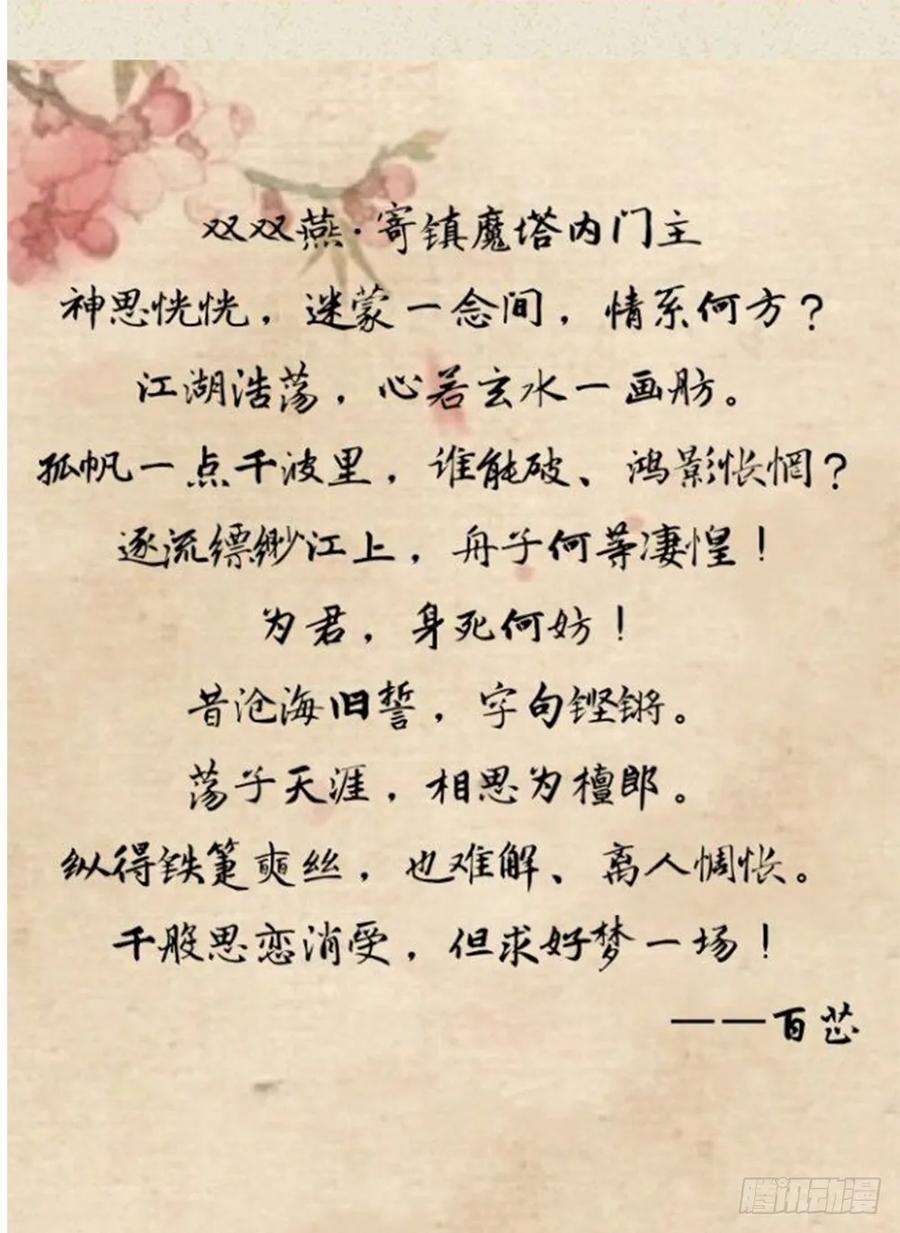 双双燕·寄镇魔塔内门主
神思恍恍，迷蒙一念间，情系何方？
江湖浩荡，心若玄水一画舫。
孤帆一点千波里，谁能破、鸿影怅惘？
逐流缥缈江上，舟子何等凄惶！
为君，身死何妨！
昔沧海旧誓，字句铿锵。
荡子天涯，相思为檀郎。
纵得铁篷爽丝，也难解、离人惆怅。
千般思恋消受，但求好梦一场！
——百
腾讯动漫